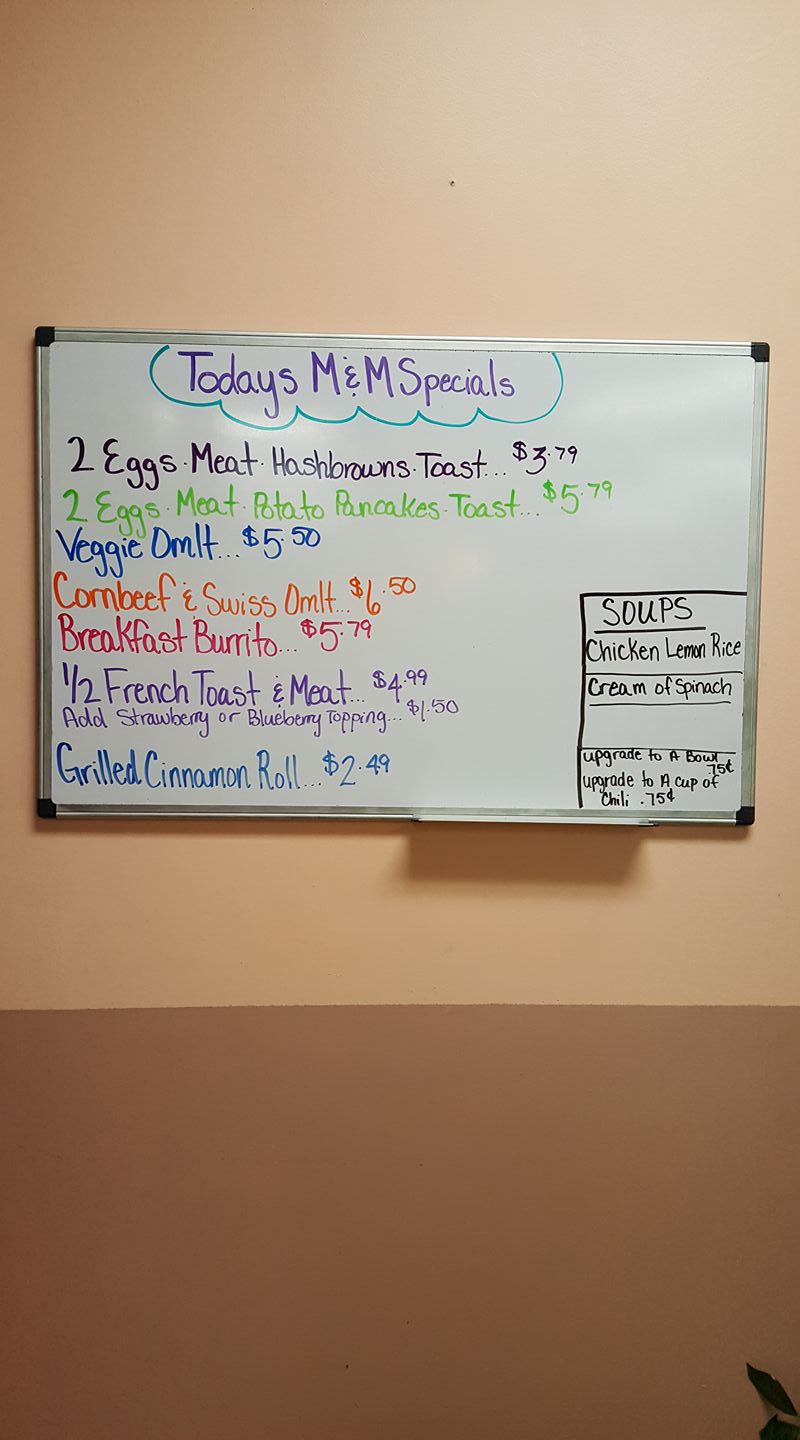 Todays M&M Specials
2 Eggs · Meat · Hashbrowns · Toast... $3.79
2 Eggs · Meat · Potato Pancakes · Toast... $5.79
Veggie Omlt... $5.50
Cornbeef & Swiss Omlt... $6.50
Breakfast Burrito... $5.79
1/2 French Toast & Meat... $4.99
Add Strawberry or Blueberry Topping... $1.50
Grilled Cinnamon Roll... $2.49
SOUPS
Chicken Lemon Rice
Cream of Spinach
upgrade to A Bowl
.75¢
upgrade to A cup of
Chili .75¢